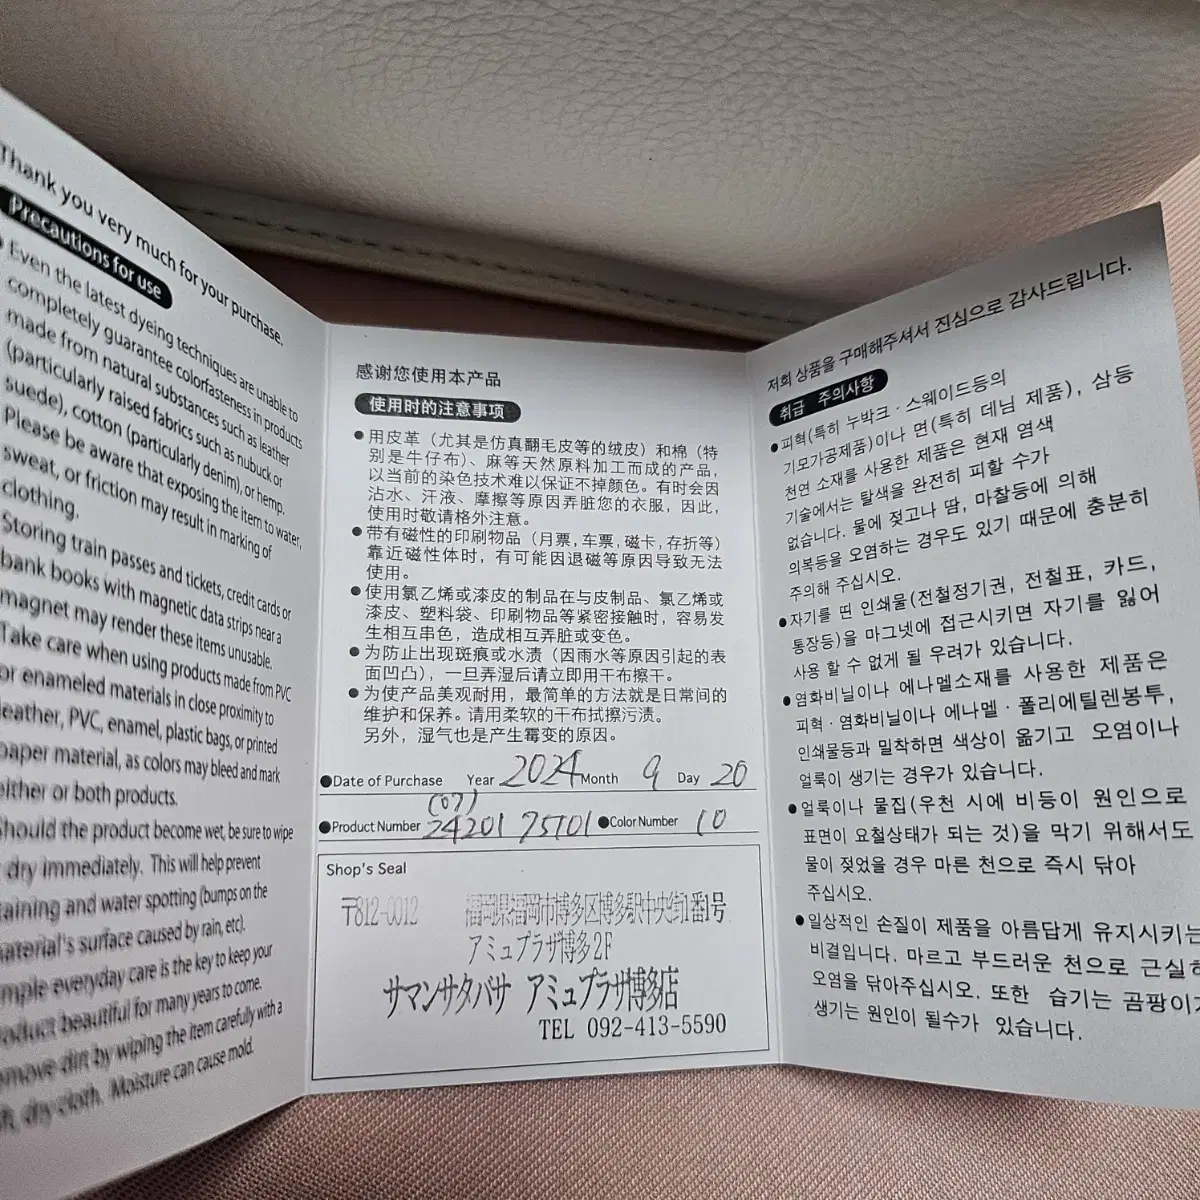 Thank you very much for your purchase.
Precautions for use
Even the latest dyeing techniques are unable to
completely guarantee colorfasteness in products
made from natural substances such as leather
(particularly raised fabrics such as nubuck or
suede), cotton (particularly denim), or hemp.
Please be aware that exposing the item to water,
sweat, or friction may result in marking of
clothing.
Storing train passes and tickets, credit cards or
bank books with magnetic data strips near a
magnet may render these items unusable.
Take care when using products made from PVC
or enameled materials in close proximity to
leather, PVC, enamel, plastic bags, or printed
paper material, as colors may bleed and mark
either or both products.
Should the product become wet, be sure to wipe
dry immediately. This will help prevent
staining and water spotting (bumps on the
material's surface caused by rain, etc).
Simple everyday care is the key to keep your
product beautiful for many years to come.
Remove dirt by wiping the item carefully with a
soft, dry cloth. Moisture can cause mold.
感谢您使用本产品
使用时的注意事项
●用皮革（尤其是仿真翻毛皮等的绒皮）和棉（特
别是牛仔布）、麻等天然原料加工而成的产品，
以当前的染色技术难以保证不掉颜色。有时会因
沾水、汗液、摩擦等原因弄脏您的衣服，因此，
使用时敬请格外注意。
●带有磁性的印刷物品（月票，车票，磁卡，存折等）
靠近磁性体时，有可能因退磁等原因导致无法
使用。
●使用氯乙烯或漆皮的制品在与皮制品、氯乙烯或
漆皮、塑料袋、印刷物品等紧密接触时，容易发
生相互串色，造成相互弄脏或变色。
●为防止出现斑痕或水渍（因雨水等原因引起的表
面凹凸），一旦弄湿后请立即用干布擦干。
●为使产品美观耐用，最简单的方法就是日常间的
维护和保养。请用柔软的干布拭擦污渍。
另外，湿气也是产生霉变的原因。
●Date of Purchase Year 2024 Month 9 Day 20
(07)
●Product Number 24201 75701 ●Color Number 10
Shop's Seal
〒812-0012 福岡県福岡市博多区博多駅中央街1番1号
アミュプラザ博多2F
サマンサタバサ アミュプラザ博多店
TEL 092-413-5590
저희 상품을 구매해주셔서 진심으로 감사드립니다.
취급 주의사항
●피혁(특히 누박크·스웨이드등의
기모가공제품)이나 면(특히 데님 제품), 삼등
천연 소재를 사용한 제품은 현재 염색
기술에서는 탈색을 완전히 피할 수가
없습니다. 물에 젖고나 땀, 마찰등에 의해
의복등을 오염하는 경우도 있기 때문에 충분히
주의해 주십시오.
●자기를 띤 인쇄물(전철정기권, 전철표, 카드,
통장등)을 마그넷에 접근시키면 자기를 잃어
사용 할 수 없게 될 우려가 있습니다.
●염화비닐이나 에나멜소재를 사용한 제품은
피혁·염화비닐이나 에나멜·폴리에틸렌봉투,
인쇄물등과 밀착하면 색상이 옮기고 오염이나
얼룩이 생기는 경우가 있습니다.
●얼룩이나 물집(우천 시에 비등이 원인으로
표면이 요철상태가 되는 것)을 막기 위해서도
물이 젖었을 경우 마른 천으로 즉시 닦아
주십시오.
●일상적인 손질이 제품을 아름답게 유지시키는
비결입니다. 마르고 부드러운 천으로 근실히
오염을 닦아주십시오. 또한 습기는 곰팡이가
생기는 원인이 될수가 있습니다.